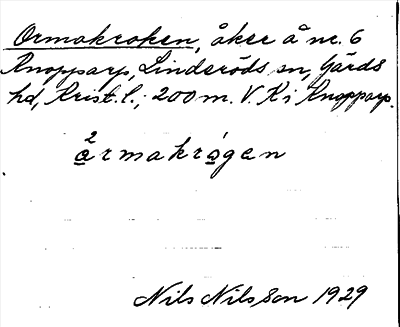 Ormakroken, åker å nr. 6
Knopparp, Linderöds sn, Gärds
hd, Krist. l.; 200 m. V. K i Knopparp.
2
årmakrógen
Nils Nilsson 1929